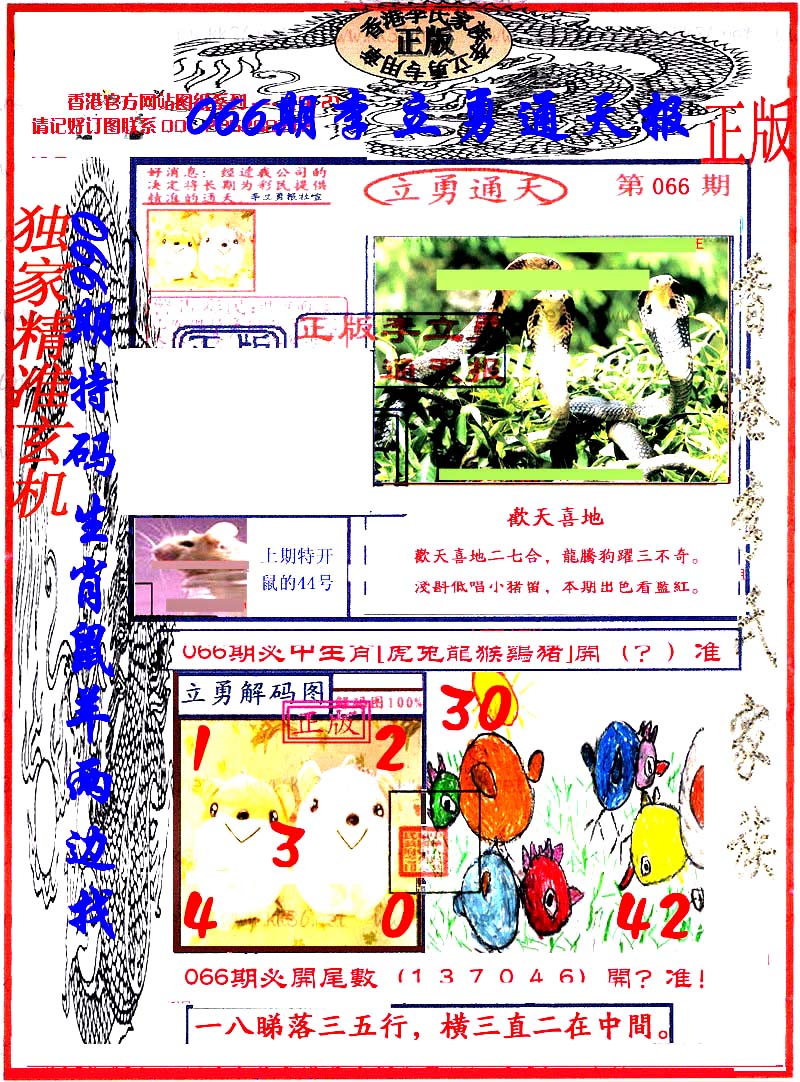 香港李氏家族
正版
李立勇专用章
066期李立勇通天报
正版
香港官方网站图纸系列
请记好订图联系
好消息：经过我公司的
决定将长期为彩民提供
精准的通天
立勇通天
第 066 期
E
独家精准玄机
066期特码生肖鼠羊两边找
正版
正版李立勇
通天报
歡天喜地
歡天喜地二七合，龍騰狗躍三不奇。
淺斟低唱小猪留，本期出色看藍紅。
上期特开
鼠的44号
066期必中生肖[虎兔龍猴鷄猪]開（？）准
立勇解码图
解码图100%
正版
1
2
3
4
0
30
42
066期必開尾數（1 3 7 0 4 6）開？准！
一八睇落三五行，横三直二在中間。
香港李氏家族